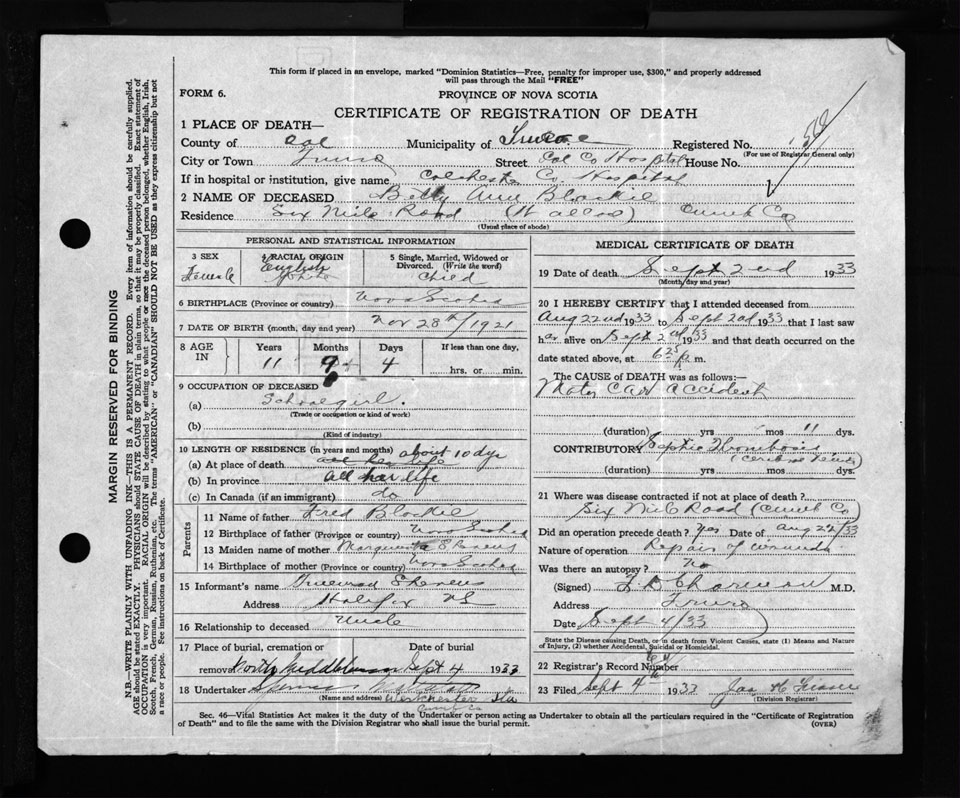 This form if placed in an envelope, marked "Dominion Statistics—Free, penalty for improper use, $300," and properly addressed
will pass through the Mail "FREE"
FORM 6.
PROVINCE OF NOVA SCOTIA
CERTIFICATE OF REGISTRATION OF DEATH
1 PLACE OF DEATH—
County of Municipality of Registered No.
(For use of Registrar General only)
City or Town Truro Street Col Co Hospital House No.
If in hospital or institution, give name Colchester Co Hospital
2 NAME OF DECEASED Betty Ann Blackie
Residence Six Mile Road (Wallace) Cumb Co
(Usual place of abode)
PERSONAL AND STATISTICAL INFORMATION
3 SEX Female
4 RACIAL ORIGIN English
5 Single, Married, Widowed or Divorced. (Write the word) Child
6 BIRTHPLACE (Province or country) Nova Scotia
7 DATE OF BIRTH (month, day and year) Nov 28th/1921
8 AGE IN Years 11 Months 9 Days 4 If less than one day, hrs. or min.
9 OCCUPATION OF DECEASED
(a) Schoolgirl.
(Trade or occupation or kind of work)
(b)
(Kind of industry)
10 LENGTH OF RESIDENCE (in years and months) about 10 dys
(a) At place of death
(b) In province All her life
(c) In Canada (if an immigrant) do
Parents
11 Name of father Fred Blackie
12 Birthplace of father (Province or country) Nova Scotia
13 Maiden name of mother
14 Birthplace of mother (Province or country) Nova Scotia
15 Informant's name
Address Halifax NS
16 Relationship to deceased Uncle
17 Place of burial, cremation or removal Date of burial Sept 4 1933
18 Undertaker
(Name and address) Westchester Sta
Cumb Co
MEDICAL CERTIFICATE OF DEATH
19 Date of death Sept 2nd 1933
(Month, day and year)
20 I HEREBY CERTIFY that I attended deceased from
Aug 22nd 1933 to Sept 2nd 1933 that I last saw
her alive on Sept 2nd 1933 and that death occurred on the
date stated above, at p m.
The CAUSE of DEATH was as follows:—
Motor Car Accident
(duration) yrs mos 11 dys.
CONTRIBUTORY Septic Thrombosis
(duration) yrs. mos. dys.
21 Where was disease contracted if not at place of death?
Six Mile Road (Cumb Co)
Did an operation precede death? Yes Date of Aug 22/33
Nature of operation Repair of wounds
Was there an autopsy? no
(Signed) M.D.
Address Truro
Date Sept 4/33
State the Disease causing Death, or in death from Violent Causes, state (1) Means and Nature
of Injury, (2) whether Accidental, Suicidal or Homicidal.
22 Registrar's Record Number
23 Filed Sept 4th 1933
(Division Registrar)
Sec. 46—Vital Statistics Act makes it the duty of the Undertaker or person acting as Undertaker to obtain all the particulars required in the "Certificate of Registration
of Death" and to file the same with the Division Registrar who shall issue the burial permit. (OVER)
MARGIN RESERVED FOR BINDING
N.B.—WRITE PLAINLY WITH UNFADING INK—THIS IS A PERMANENT RECORD. Every item of information should be carefully supplied.
AGE should be stated EXACTLY. PHYSICIANS should STATE CAUSE OF DEATH in plain terms, so that it may be properly classified. Exact statement of
OCCUPATION is very important. RACIAL ORIGIN will be described by stating to what people or race the deceased person belonged, whether English, Irish,
Scotch, French, German, Russian, Ruthenian, etc. The terms "AMERICAN" or "CANADIAN" SHOULD NOT BE USED as they express citizenship but not
a race or people. Fee instructions on back of Certificate.